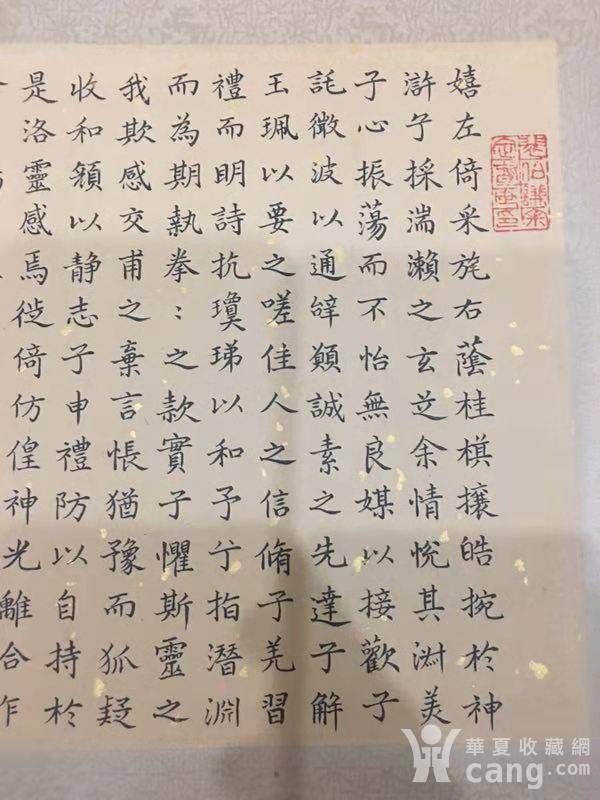 嬉左倚采旄右蔭桂棋攘皓捥於神
滸兮採湍瀨之玄芝余情悅其淑美
兮心振蕩而不怡無良媒以接歡兮
託微波以通辝願誠素之先達兮解
玉珮以要之嗟佳人之信脩兮羌習
禮而明詩抗瓊珶以和予兮指潛淵
而為期執拳〻之款實兮懼斯靈之
我欺感交甫之棄言悵猶豫而狐疑
收和顏以靜志兮申禮防以自持於
是洛靈感焉徙倚仿偟神光離合乍
華夏收藏網
cang.com